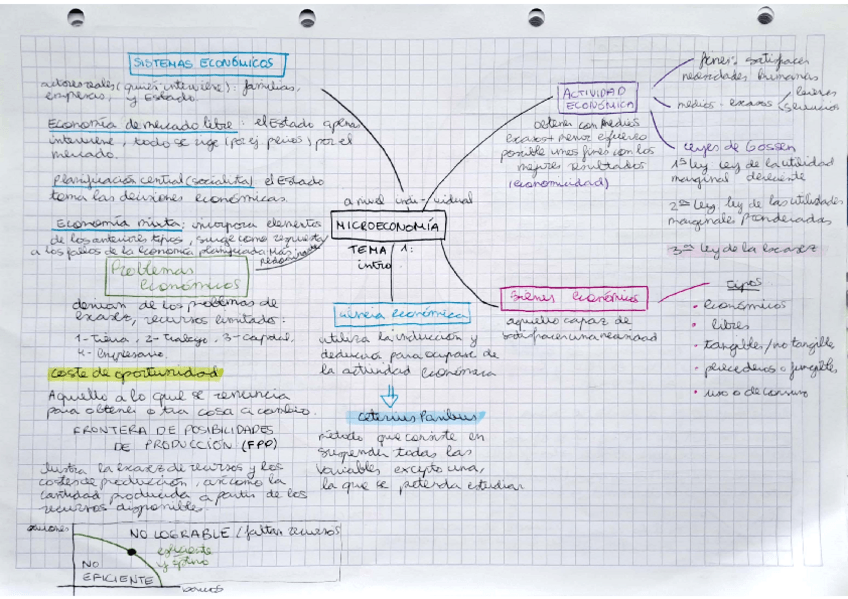 SISTEMAS ECONÓMICOS
actores reales (quien interviene): familias,
empresas, y Estado.
Economía de mercado libre: el Estado apenas
interviene, todo se rige (por ej. precios) por el
mercado.
Planificación central (socialista) el Estado
toma las decisiones económicas.
Economía mixta; incorpora elementos
de los anteriores tipos, surge como respuesta
a los fallos de la economía planificada. Más
Problemas
económicos
derivan de los problemas de
escasez, recursos limitado:
1-Tierra, 2-Trabajo, 3-Capital,
4-Empresario.
coste de oportunidad
Aquello a lo que se renuncia
para obtener otra cosa a cambio.
FRONTERA DE POSIBILIDADES
DE PRODUCCIÓN (FPP)
ilustra la escasez de recursos y los
costes de producción, así como la
cantidad producida a partir de los
recursos disponibles.
NO LOGRABLE (faltan recursos
eficiente
y óptimo
NO
EFICIENTE
a nivel individual
MICROECONOMÍA
TEMA 1:
intro
ciencia económica
utiliza la inducción y
deducción para ocuparse de
la actividad económica
Ceterius Paribus
método que consiste en
suspender todas las
variables excepto una,
la que se pretenda estudiar
ACTIVIDAD
ECONÓMICA
obtener con medios
escasos + menor esfuerzo
posible unos fines con los
mejores resultados
(economicidad)
fines: satisfacer
necesidades humanas
medios - escasos
bienes
servicios
Leyes de Gossen
1ª ley ley de la utilidad
marginal decreciente
2ª ley ley de las utilidades
marginales ponderadas
3ª ley de la escasez
Bienes económicos
aquello capaz de
satisfacer una necesidad
tipos
• económicos
• libres
• tangibles/no tangible
• perecederos o fungibles
• uso o de consumo